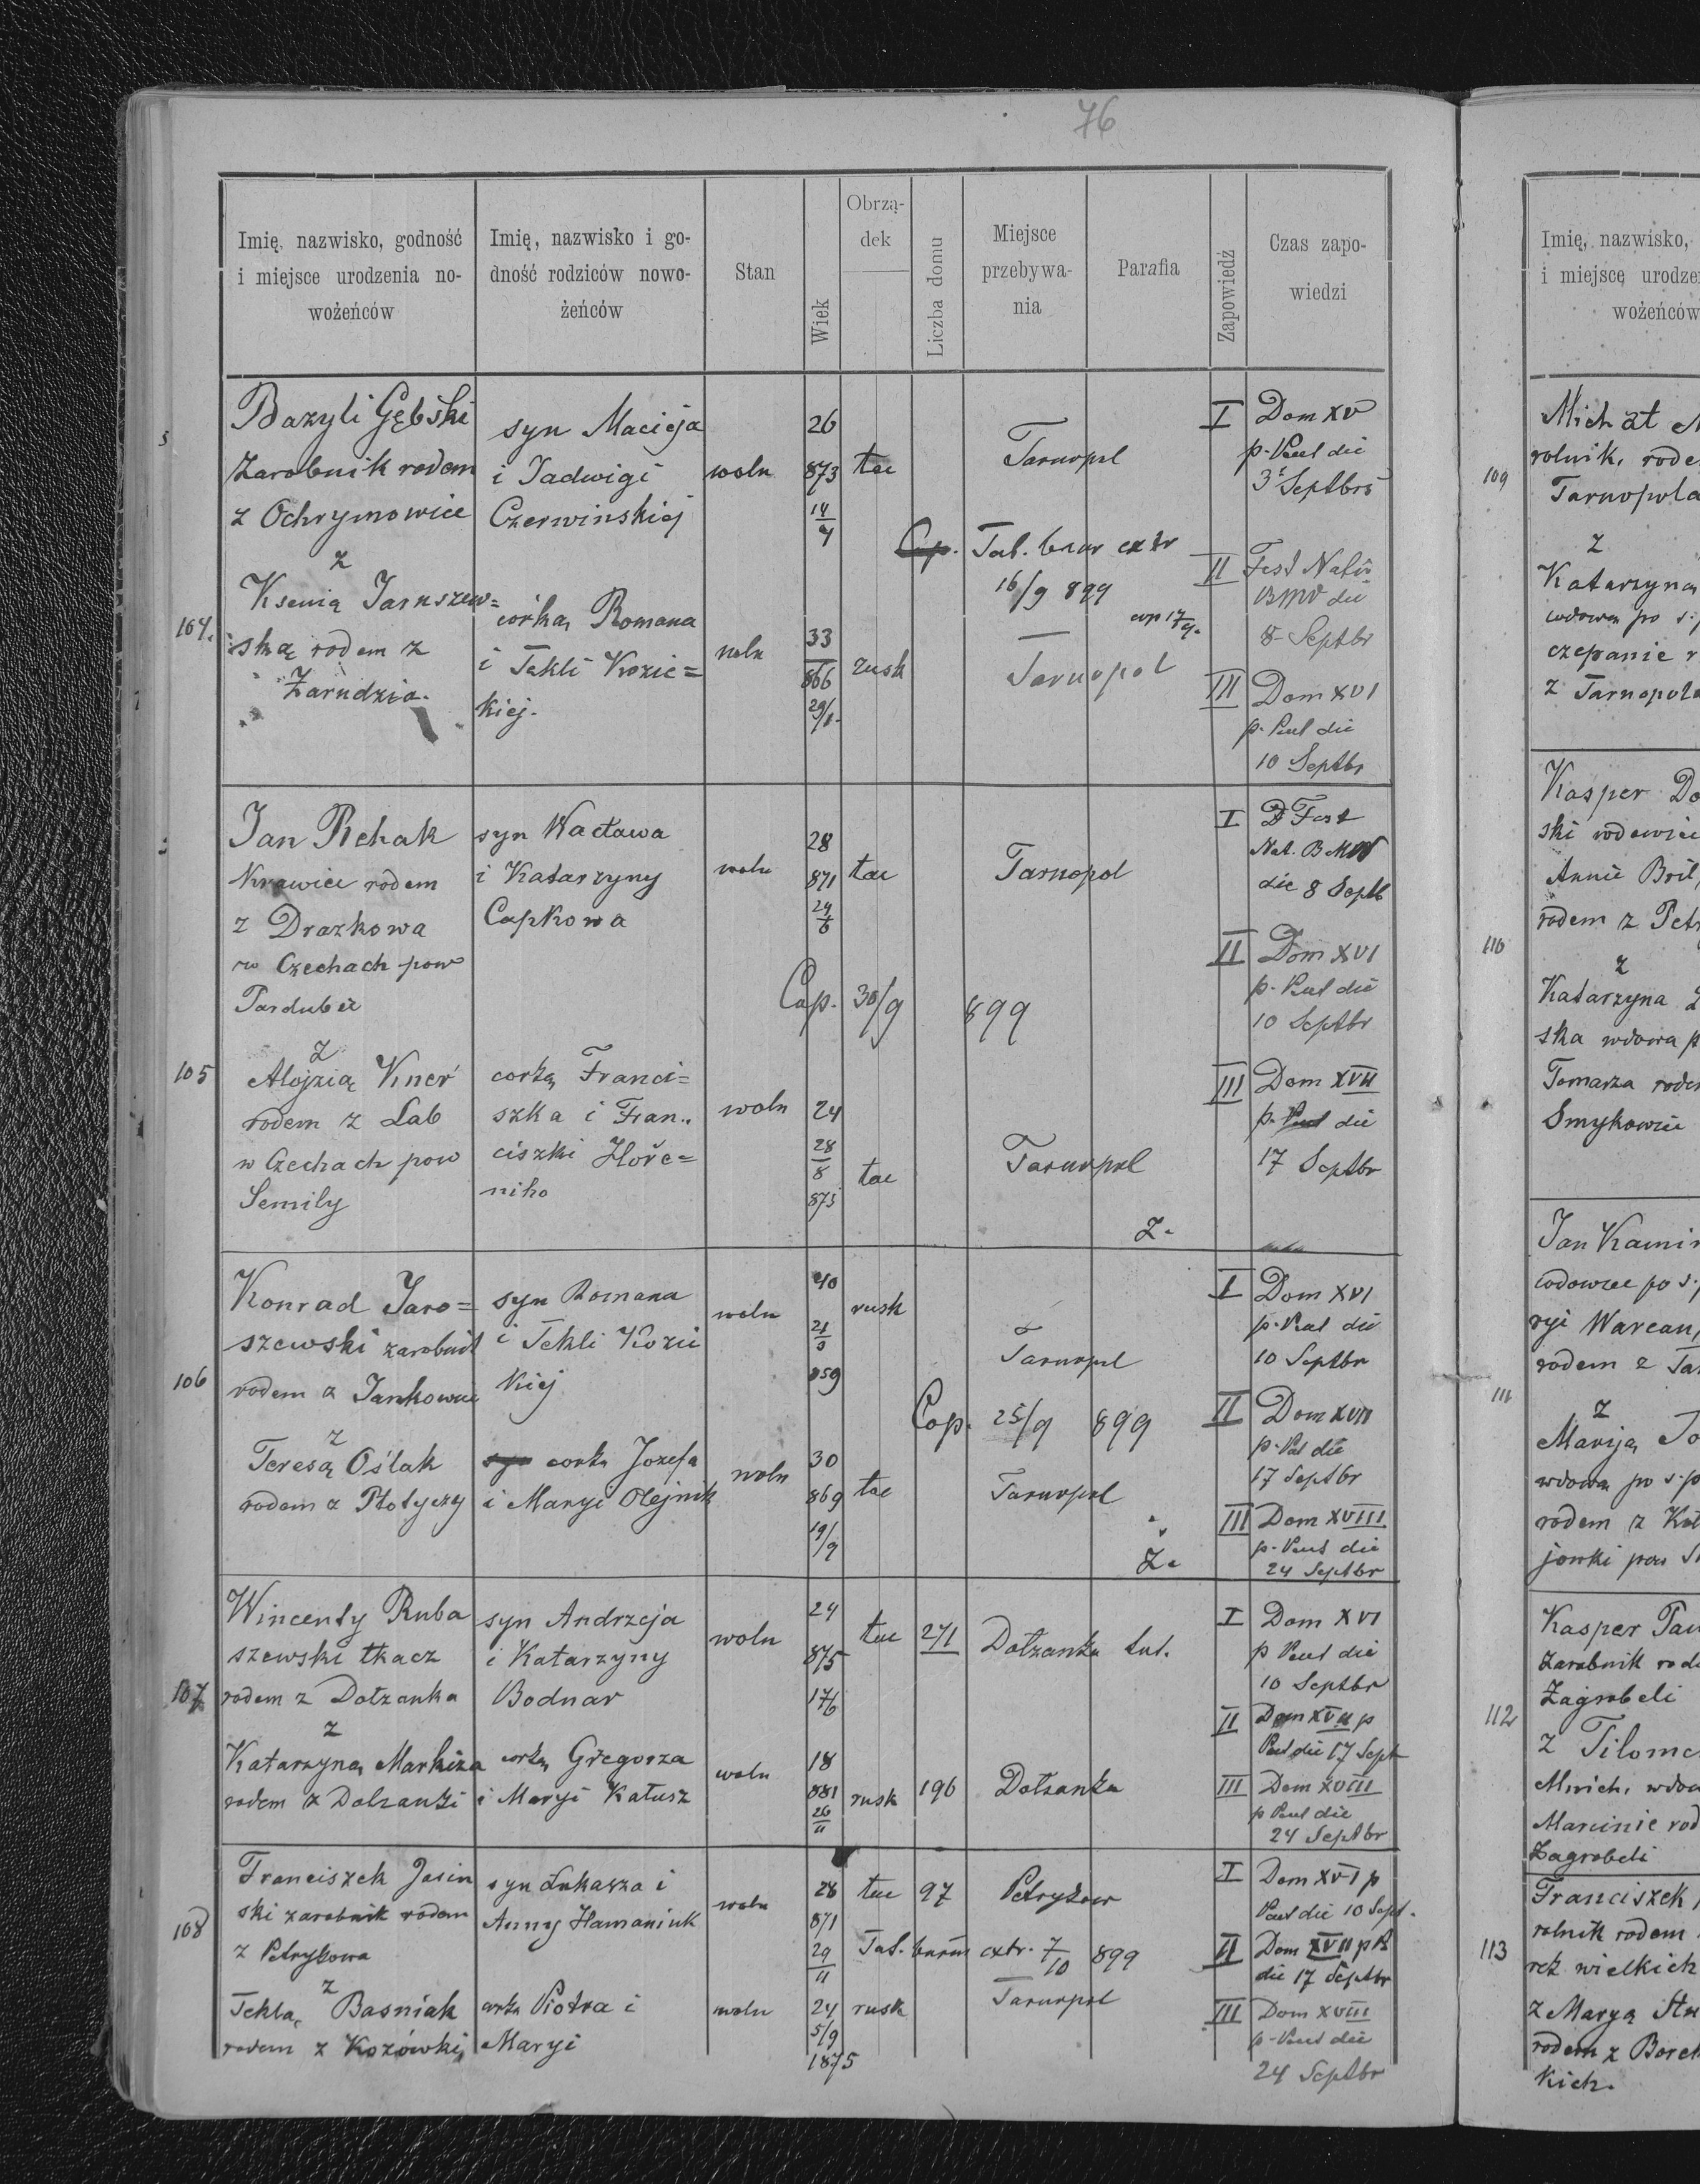 76
Imię, nazwisko, godność
i miejsce urodzenia no-
wożeńców
Imię, nazwisko i go-
dność rodziców nowo-
żeńców
Stan
Wiek
Obrzą-
dek
Liczba domu
Miejsce
przebywa-
nia
Parafia
Zapowiedź
Czas zapo-
wiedzi
104.
Bazyli Gębski
zarobnik rodem
z Ochrymowiec
z
Ksenią Jaruszew=
ską rodem z
Zarudzia.
syn Macieja
i Jadwigi
Czerwinskiej
córka Romana
i Tekli Kozic=
kiej.
woln
woln
26
873
14/4
33
866
29/1
łac
rusk
Tarnopol
16/9 899
Tarnopol
I Dom XV
p. Pent die
3 Septbris
II Fest Nativ
BMV die
8 Septbr
III Dom XVI
p. Pent die
10 Septbr
105
Jan Rehak
Krawiec rodem
z Drazkowa
w Czechach pow
Pardubic
z
Alojzią Kner
rodem z Lab
w Czechach pow
Semily
syn Wacława
i Katarzyny
Capkowa
corką Franci=
szka i Fran..
ciszki Hoře=
niho
woln
woln
28
871
24/6
24
28/8
875
łac
łac
Tarnopol
Cop. 30/9 899
Tarnopol
Z.
I Fest
Nat. BMV
die 8 Septb
II Dom XVI
p. Pent die
10 Septbr
III Dom XVII
p. Pent die
17 Septbr
106
Konrad Jaro=
szewski zarobnik
rodem z Jankowiec
z
Teresą Oślak
rodem z Płotyczy
syn Romana
i Tekli Kozic
kiej
corka Jozefa
i Maryi Olejnik
woln
woln
40
859
30
869
19/9
rusk
łac
Tarnopol
Cop. 25/9 899
Tarnopol
Z.
I Dom XVI
p. Pent die
10 Septbr
II Dom XVII
p. Pent die
17 Septbr
III Dom XVIII
p. Pent die
24 Septbr
107
Wincenty Ruba
szewski tkacz
rodem z Dołzanka
z
Katarzyną Markiza
rodem z Dołzanki
syn Andrzeja
i Katarzyny
Bodnar
corką Grzegorza
i Maryi Kałusz
woln
woln
24
875
17/6
18
881
26/11
łac
rusk
271
196
Dołzanka tut.
Dołzanka
I Dom XVI
p Pent die
10 Septbr
II Dom XVII p
Pent die 17 Sept
III Dom XVIII
p Pent die
24 Septbr
108
Franciszek Jasin
ski zarobnik rodem
z Petrykowa
z
Teklą Basniak
rodem z Kozówki
syn Łukasza i
Anny Hamaniuk
corka Piotra i
Maryi
woln
woln
28
871
29/11
24
5/9
1875
łac
rusk
97
Petryków
extr. 7/10 899
Tarnopol
I Dom XVI p
Pent die 10 Sept.
II Dom XVII p P
die 17 Septbr
III Dom XVIII
p. Pent die
24 Septbr
Imię, nazwisko,
i miejsce urodze
wożeńców
109
Michał
rolnik, rode
Tarnopola
z
Katarzyną
wdową po ś.p
czepanie r
z Tarnopola
110
Kasper Do
ski rodowice
Annie Bril,
rodem z Petr
z
Katarzyna
ska wdowa p
Tomasza rode
Smykowiec
111
Jan Kamin
wdowiec po ś.p
ryi Warcan,
rodem z Tar
z
Maryją
wdową po ś.p
rodem z
jowki pow
112
Kasper
zarobnik rod
Zagrobeli
z
Mirich, wdow
Marcinie rod
Zagrobeli
113
Franciszek
rolnik rodem
rek wielkich
z Maryą
rodem z Borek
kich.